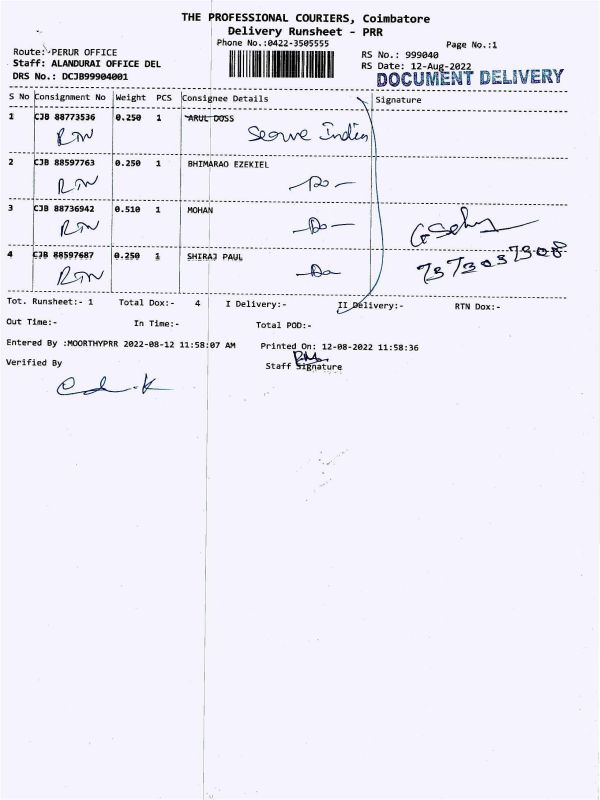 THE PROFESSIONAL COURIERS, Coimbatore
Delivery Runsheet - PRR
Phone No.:0422-3505555
Page No.:1
Route: PERUR OFFICE
RS No.: 999040
Staff: ALANDURAI OFFICE DEL
RS Date: 12-Aug-2022
DRS No.: DCJB99904001
DOCUMENT DELIVERY
S No Consignment No Weight PCS Consignee Details Signature
1 CJB 88773536 0.250 1 ARUL DOSS
RTN Serve India
2 CJB 88597763 0.250 1 BHIMARAO EZEKIEL
RTN -Do-
3 CJB 88736942 0.510 1 MOHAN
RTN -Do-
4 CJB 88597687 0.250 1 SHIRAJ PAUL
RTN -Do
7373037308
Tot. Runsheet:- 1 Total Dox:- 4 I Delivery:- II Delivery:- RTN Dox:-
Out Time:- In Time:- Total POD:-
Entered By :MOORTHYPRR 2022-08-12 11:58:07 AM Printed On: 12-08-2022 11:58:36
Verified By Staff Signature